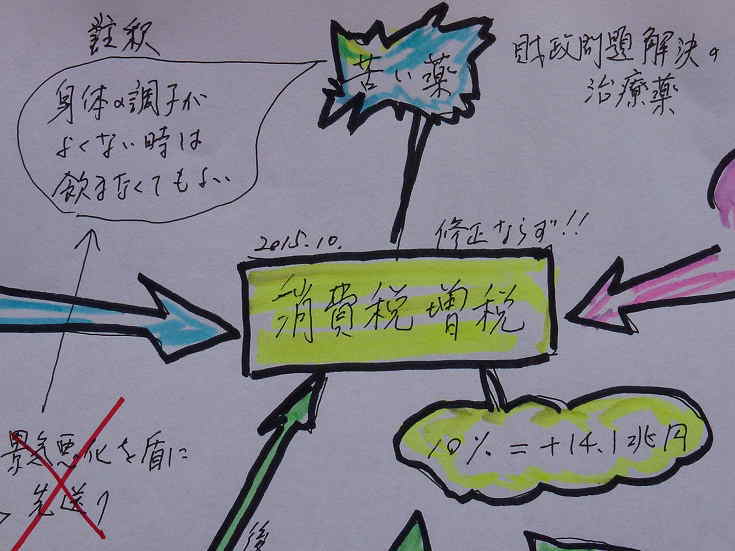 註釈
苦い薬
財政問題解決の
治療薬
身体の調子が
よくない時は
飲まなくてもよい
2015.10.
修正ならず!!
消費税増税
10% = +14.1兆円
景気悪化を盾に
先送り
後